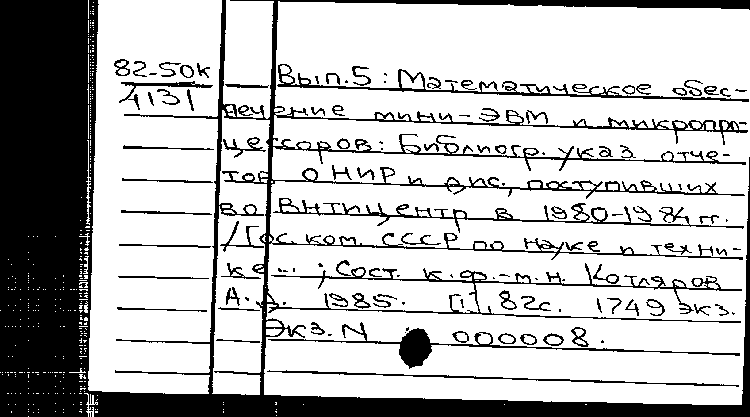 82-50к
4131
Вып.5: Математическое обес-
печение мини-ЭВМ и микропро-
цессоров: Библиогр. указ. отче-
тов о НИР и дис., поступивших
во ВНТИЦентр в 1980-1984 гг.
/Гос. ком. СССР по науке и техни-
ке... ; Сост. к.ф.-м.н. Котляров
А.Д. 1985. [1], 82с. 1749 экз.
Экз. N 000008.